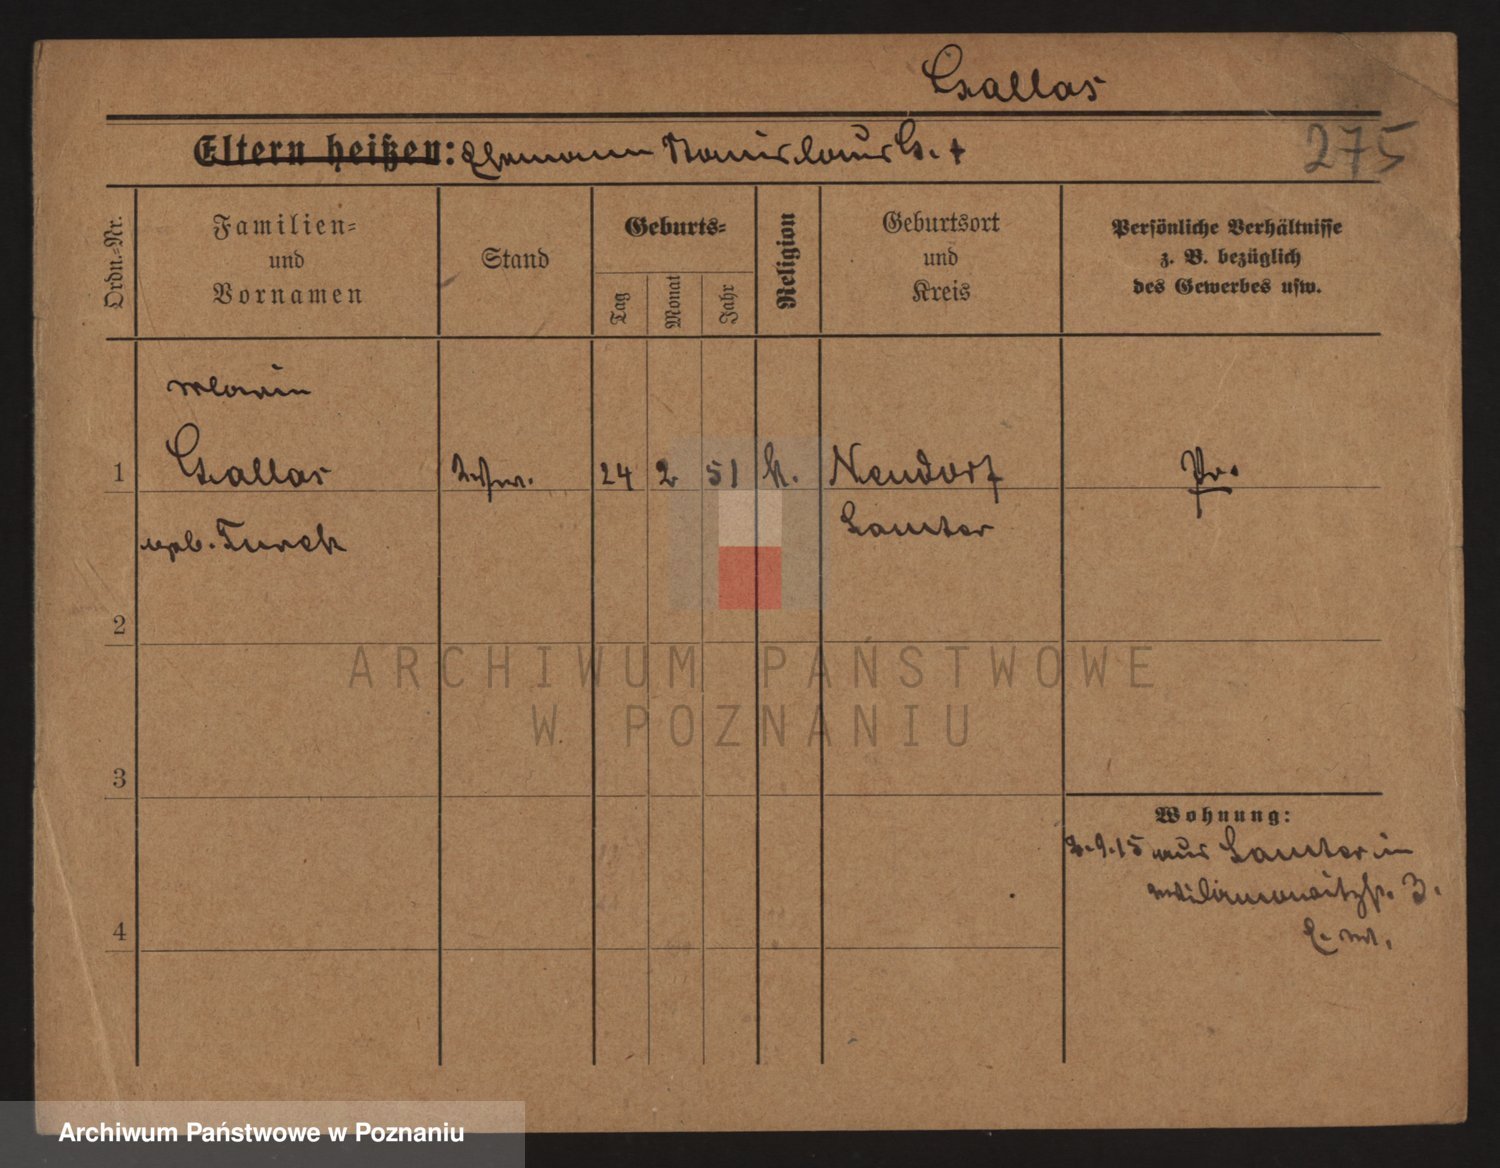 Czallas
Eltern heißen: Ehemann Stanislaus C. †
275
Ordn.-Nr.
Familien-
und
Vornamen
Stand
Geburts-
Tag
Monat
Jahr
Religion
Geburtsort
und
Kreis
Persönliche Verhältnisse
z. B. bezüglich
des Gewerbes usw.
Maria
1 Czallas Wwe. 24 2 51 k. Neudorf Pr.
geb. Turek Samter
2
3
4
Wohnung:
2.9.15 aus Samter in
Wilamowitzstr. 3.
ARCHIWUM PAŃSTWOWE
W POZNANIU
Archiwum Państwowe w Poznaniu